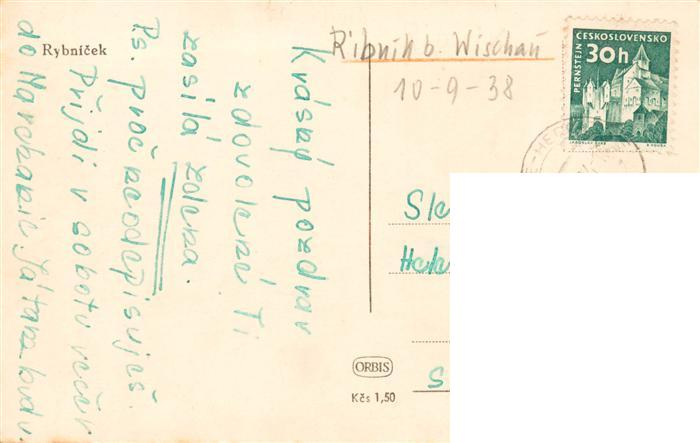 Rybníček
Krásný pozdrav
z dovolené Ti
zasílá Zdena.
Ps. proč neodepisuješ.
Přijdi v sobotu večer
do Já tam budu.
Ribnik b. Wischau
10-9-38
ČESKOSLOVENSKO
30h
PERNŠTEJN
JAROSLAV
Sle
S
ORBIS
Kčs 1,50